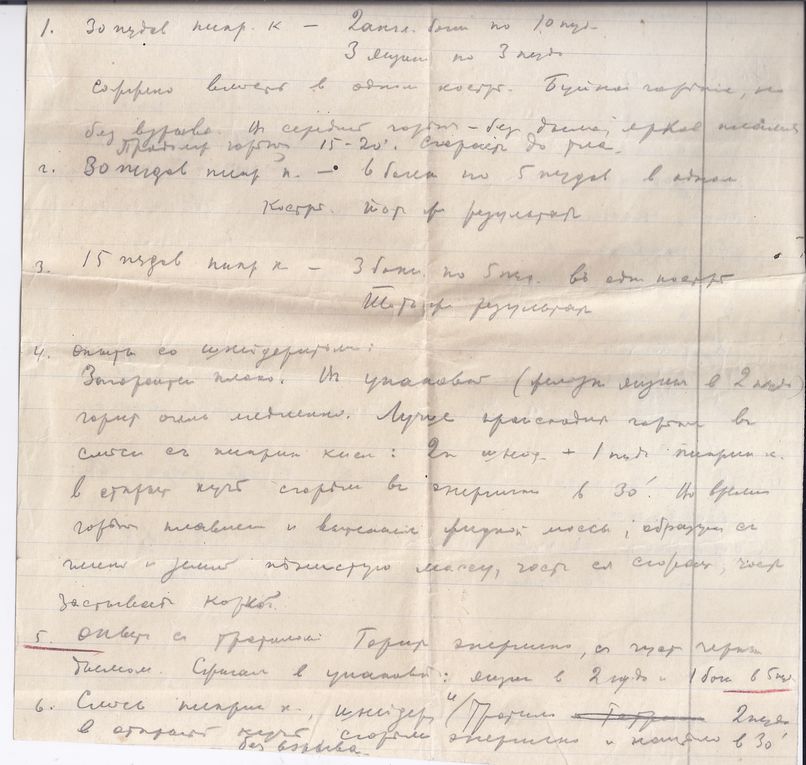 1. 30 пудов пикр. к – 2 англ. бочк по 10 пуд.
3 ящик по 3 пуда
сожжено вместе в одном костре. Буйное горение, но
без взрыва. Из середины горит – без дыма, ярков пламенем
горит 15-20'. Сгорает до тла.
2. 30 пудов пикр к. – 6 бочек по 5 пудов в одном
костре. Тот же результат
3. 15 пудов пикр к – 3 боч. по 5 пуд. въ одн костре
Тотъ же результат
4. опыты со шнейдеритом:
Загорается плохо. Из упаковки (ящик в 2 пуда)
горит очень медленно. Лучше происходит горение въ
смеси съ пикрин кисл: 2 п шнейд. + 1 пуд пикрин к.
в открыт куче сгорели энергично в 30'. Во время
горения плавление и вытекание жидкой массы, образуя съ
и землей массу, часть ея сгорает, часть
застывает коркой.
5. опыт с тротилом: Горит энергично, съ густ черным
дымом. Сжигал в упаковке: ящик в 2 пуда и 1 боч в 5 пуд
6. Смесь пикрин к., шнейдер и тротила 2 пуда
в открытой куче сгорели энергично в 30'
без взрыва.